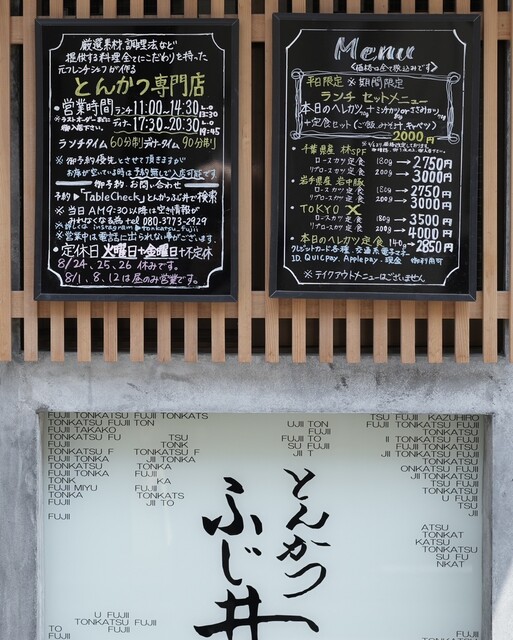 厳選素材、調理法など
提供する料理全てにこだわりを持った
元フレンチシェフが作る
とんかつ専門店
営業時間 ランチ 11:00〜14:30 L.O 13:30
※ラストオーダー前に
ディナー 17:30〜20:30 L.O 19:45
ランチタイム 60分制 ディナータイム 90分制
※ 御予約優先とさせて頂きますが
お席が空いている時は予約無しで入店可能です
御予約、お問い合わせ
予約▶TableCheck よりとんかつふじ井で検索
※ 当日AM9:30以降は空き情報が
みれなくなる為 tel 080-3773-2929
※詳しくは instagram ▶tonkatsu_fujii
※営業中は電話に出られない事がございます。
・定休日 火曜日+金曜日+不定休
8/24、25、26 休みです。
8/1、8、12 は昼のみ営業です。
Menu
〈価格は全て税込みです〉
平日限定 ※ 期間限定
ランチ セットメニュー
本日のヘレカツ
+定食セット(ご飯、みそ汁、キャベツ)
2000円
・千葉県産 林SPF
ロースカツ定食 180g → 2750円
リブロースカツ定食 200g → 3000円
岩手県産 岩中豚
ロースカツ定食 180g → 2750円
リブロースカツ定食 200g → 3000円
・TOKYO X
ロースカツ定食 180g → 3500円
リブロースカツ定食 200g → 4000円
・本日のヘレカツ定食 140g → 2850円
クレジットカード各種、交通系電子マネー
ID、Quicpay、Applepay、現金 御利用可
※ テイクアウトメニューはございません
FUJII TONKATSU FUJII TONKATS
FUJII TONKATSU FUJII TON
FUJII TAKAKO
TONKATSU FU
FUJII
TONKATSU F
FUJII TONKA
TONKATSU
FUJII TONKA
TONK
FUJII MIYU
TONKA
FUJII
TSU
TONK
TONKATSU F
FUJII TONK
TONKA
KA
FUJII
TONKATS
JII TO
UJII TON
FUJII FU
SU FUJII
JII T
TSU FUJII KAZUHIRO
FUJII TONKATSU FUJII
II TONKATSU FUJII
FUJII TONKATSU
TONKATSU FUJII
ONKATSU FUJII
FUJII TONKATSU
TONKATSU FUJII
U FUJII
TSU
JII
ATSU
TONKAT
KATSU
TONKATSU
SU FU
NKAT
とんかつ
ふじ井
U FUJII
FUJII TON
TO
FUJII
TONKATSU
FUJII